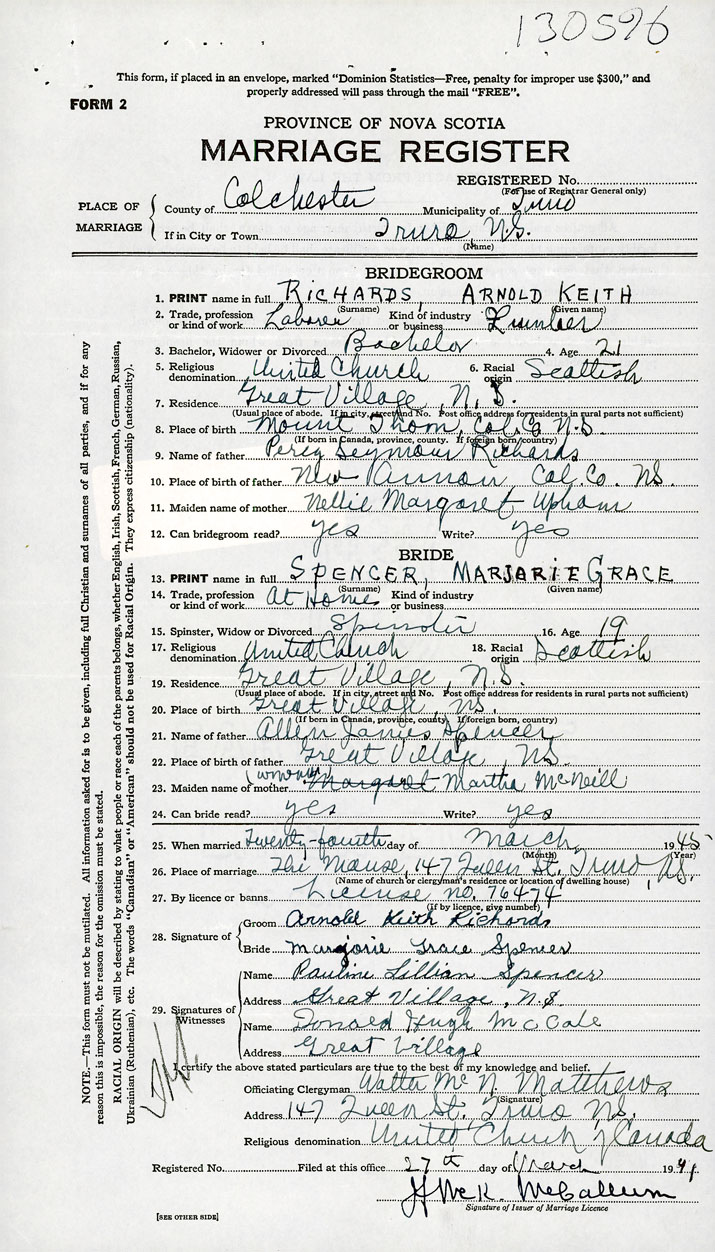 130596
This form, if placed in an envelope, marked "Dominion Statistics—Free, penalty for improper use $300," and
properly addressed will pass through the mail "FREE".
FORM 2
PROVINCE OF NOVA SCOTIA
MARRIAGE REGISTER
REGISTERED No.
(For use of Registrar General only)
PLACE OF MARRIAGE
County of Colchester Municipality of Truro
If in City or Town Truro, N.S.
(Name)
BRIDEGROOM
1. PRINT name in full RICHARDS, ARNOLD KEITH
(Surname) (Given name)
2. Trade, profession or kind of work Laborer Kind of industry or business Lumber
3. Bachelor, Widower or Divorced Bachelor 4. Age 21
5. Religious denomination United Church 6. Racial origin Scottish
7. Residence Great Village, N.S.
(Usual place of abode. If in city, street and No. Post office address for residents in rural parts not sufficient)
8. Place of birth Mount Thom, Col. Co. N.S.
(If born in Canada, province, county. If foreign born, country)
9. Name of father Percy Seymour Richards
10. Place of birth of father New Annan, Col. Co. NS.
11. Maiden name of mother Nellie Margaret Upham
12. Can bridegroom read? yes Write? yes
BRIDE
13. PRINT name in full SPENCER, MARJORIE GRACE
(Surname) (Given name)
14. Trade, profession or kind of work At Home Kind of industry or business
15. Spinster, Widow or Divorced Spinster 16. Age 19
17. Religious denomination United Church 18. Racial origin Scottish
19. Residence Great Village, N.S.
(Usual place of abode. If in city, street and No. Post office address for residents in rural parts not sufficient)
20. Place of birth Great Village, NS.
(If born in Canada, province, county. If foreign born, country)
21. Name of father Allen James Spencer
22. Place of birth of father Great Village, NS.
23. Maiden name of mother Margaret Martha McNeill
24. Can bride read? yes Write? yes
25. When married Twenty-fourth day of March 1945
(Month) (Year)
26. Place of marriage The Manse, 147 Queen St., Truro, NS.
(Name of church or clergyman's residence or location of dwelling house)
27. By licence or banns License no. 76474
(if by licence, give number)
28. Signature of
Groom Arnold Keith Richards
Bride Marjorie Grace Spencer
29. Signatures of Witnesses
Name Pauline Lillian Spencer
Address Great Village, N.S.
Name Donald Hugh McCale
Address Great Village
I certify the above stated particulars are true to the best of my knowledge and belief.
Officiating Clergyman Walter Mc N. Matthews
(Signature)
Address 147 Queen St. Truro NS.
Religious denomination United Church of Canada
Registered No. Filed at this office 27th day of March 194
McCallum
Signature of Issuer of Marriage Licence
[SEE OTHER SIDE]
NOTE.—This form must not be mutilated. All information asked for is to be given, including full Christian and surnames of all parties, and if for any
reason this is impossible, the reason for the omission must be stated.
RACIAL ORIGIN will be described by stating to what people or race each of the parents belongs, whether English, Irish, Scottish, French, German, Russian,
Ukrainian (Ruthenian), etc. The words "Canadian" or "American" should not be used for Racial Origin. They express citizenship (nationality).